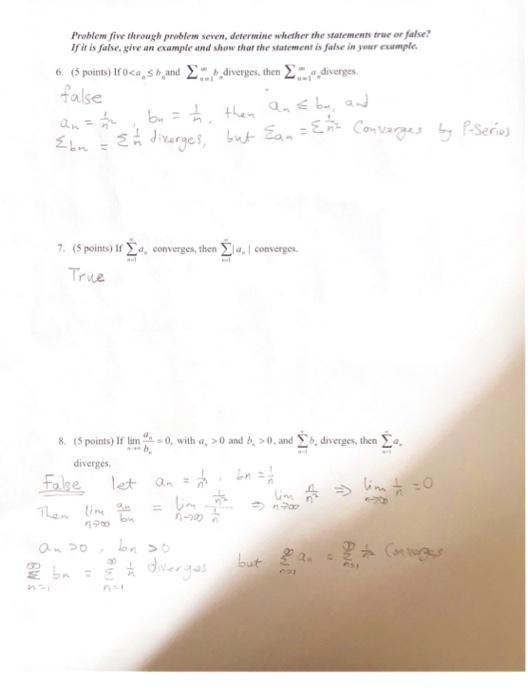 Problem five through problem seven, determine whether the statements true or false?
If it is false, give an example and show that the statement is false in your example.
6. (5 points) If 0<aₙ≤bₙ and ∑ₙ₌₁^∞ bₙ diverges, then ∑ₙ₌₁^∞ aₙ diverges.
false
aₙ = 1/n², bₙ = 1/n, then aₙ ≤ bₙ, and
Σbₙ = Σ1/n diverges, but Σaₙ = Σ1/n² Converges by P-Series
7. (5 points) If ∑ₙ₌₁^∞ aₙ converges, then ∑ₙ₌₁^∞ |aₙ| converges.
True
8. (5 points) If lim n→∞ aₙ/bₙ = 0, with aₙ >0 and bₙ >0, and ∑ₙ₌₁^∞ bₙ diverges, then ∑ₙ₌₁^∞ aₙ
diverges.
False let aₙ = 1/n², bₙ = 1/n
Then lim n→∞ aₙ/bₙ = lim n→∞ (1/n²)/(1/n) ⇒ lim n→∞ n/n² ⇒ lim n→∞ 1/n = 0
aₙ >0, bₙ >0
∑ₙ₌₁^∞ bₙ = ∑ₙ₌₁^∞ 1/n diverges but ∑ₙ₌₁^∞ aₙ = ∑ₙ₌₁^∞ 1/n² Converges